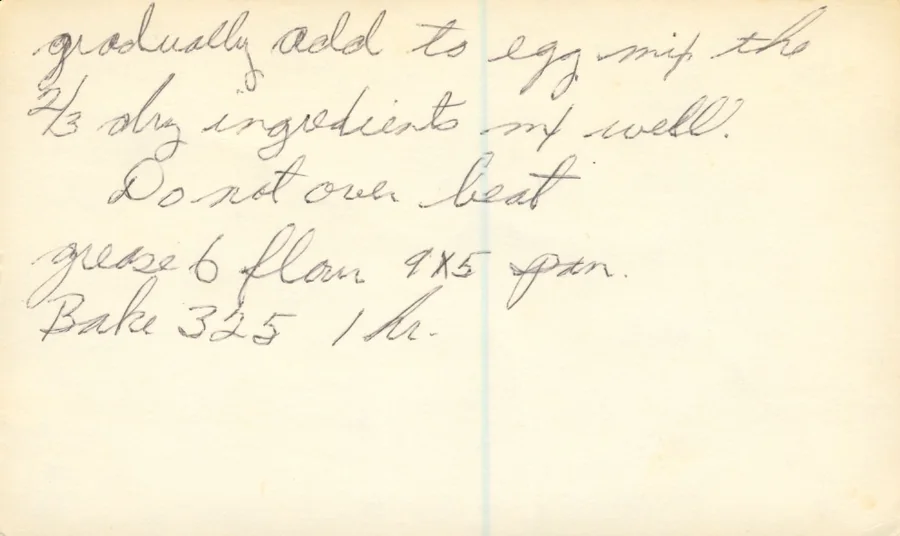 gradually add to egg mix the
2/3 dry ingredients mx well.
Do not over beat
grease & flour 9X5 pan.
Bake 325 1 hr.